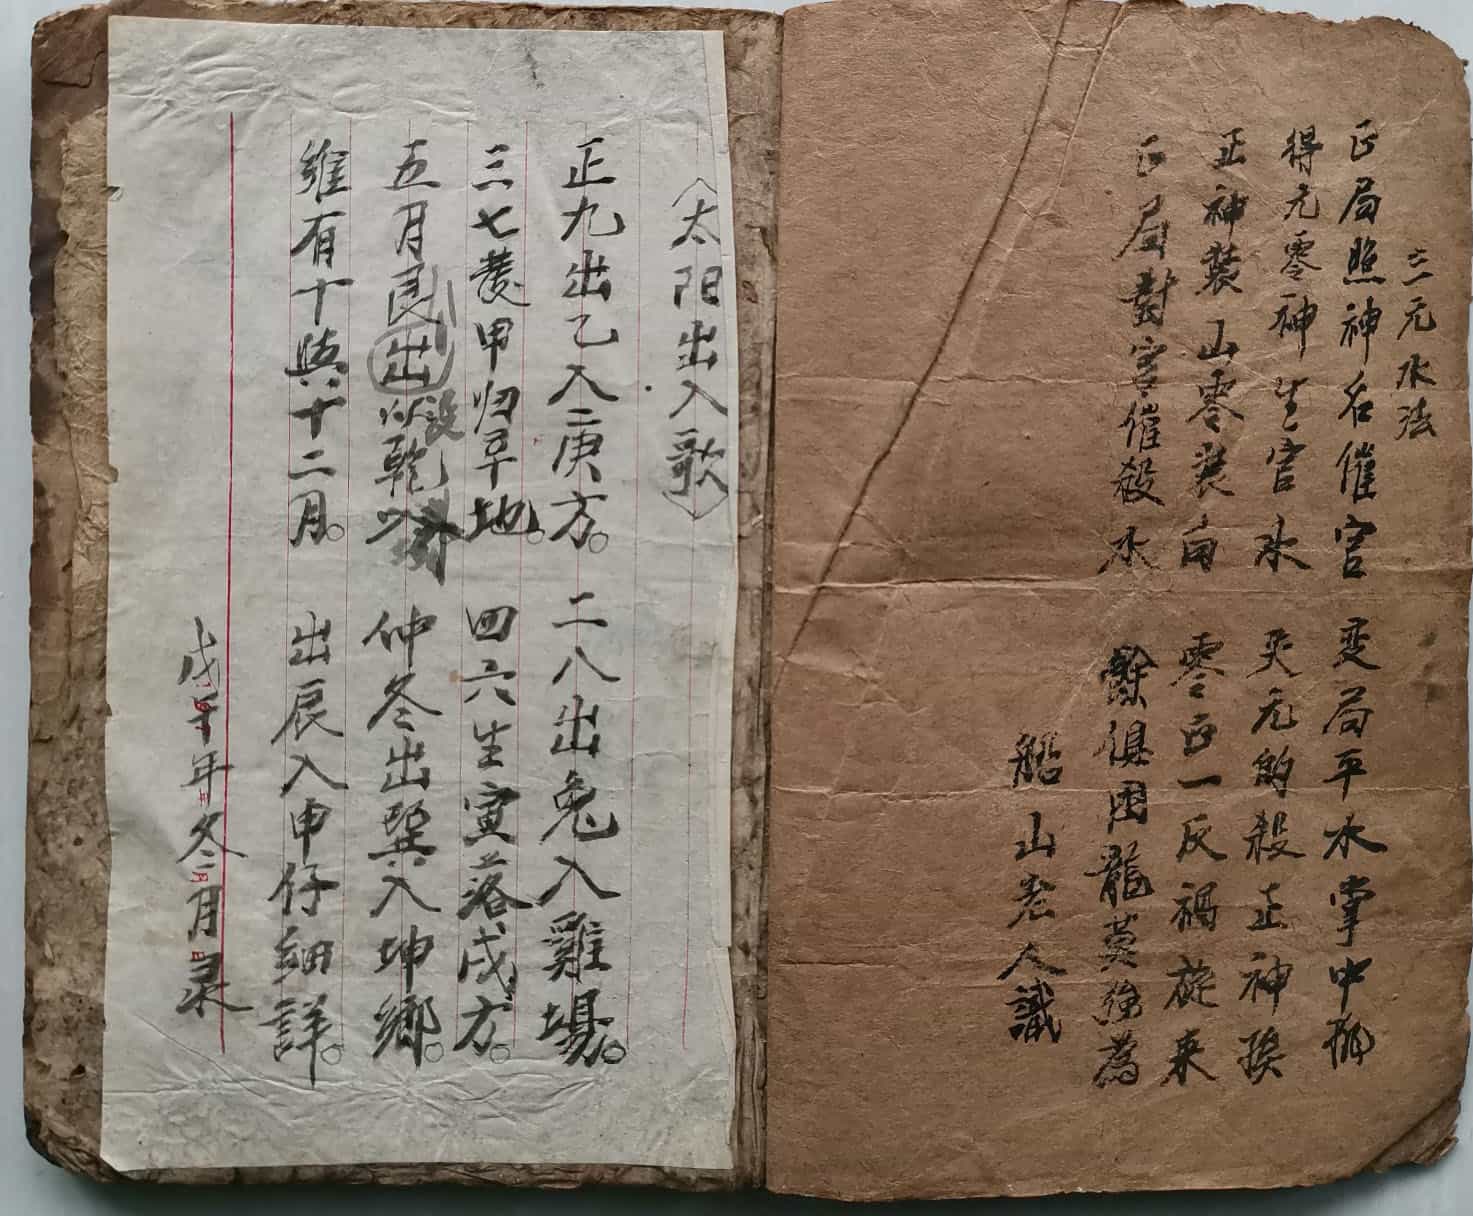 三元水法
正局照神名催官 变局平水掌中挑
得元零神生官水 失元的殺正神挨
正神裝山零裝向 零正一反禍旋来
正局對宮催殺水 餘俱困龍莫強為
船山老人識
（太阳出入歌）
正九出乙入庚方。 二八出兔入雞場。
三七發甲归辛地。 四六生寅落戌方。
五月艮出以乾 仲冬出巽入坤鄉。
維有十與十二月。 出辰入申仔細詳。
戊午年冬月录